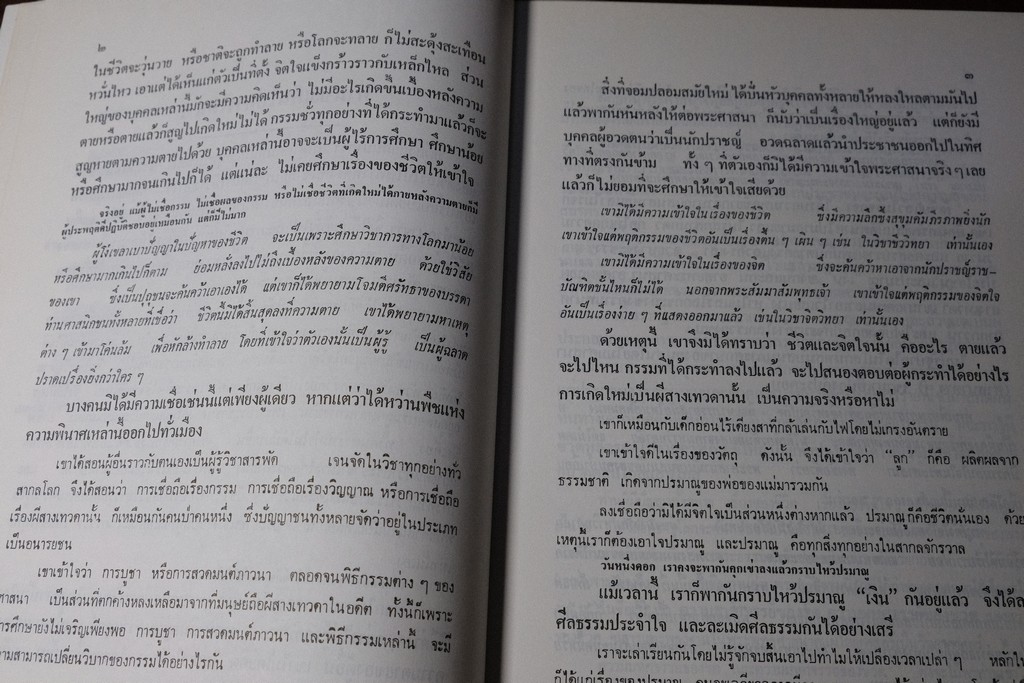 ๒
ในชีวิตจะวุ่นวาย หรือชาติจะถูกทำลาย หรือโลกจะทลาย ก็ไม่สะดุ้งสะเทือน
หวั่นไหว เอาแต่ได้เห็นแก่ตัวเป็นที่ตั้ง จิตใจแข็งกร้าวราวกับเหล็กไหล ส่วน
ใหญ่ของบุคคลเหล่านี้มักจะมีความคิดเห็นว่า ไม่มีอะไรเกิดขึ้นเบื้องหลังความ
ตายหรือตายแล้วก็สูญไปเกิดใหม่ไม่ได้ กรรมชั่วทุกอย่างที่ได้กระทำมาแล้วก็จะ
สูญหายตามความตายไปด้วย บุคคลเหล่านี้อาจจะเป็นผู้ไร้การศึกษา ศึกษาน้อย
หรือศึกษามากจนเกินไปก็ได้ แต่แน่ละ ไม่เคยศึกษาเรื่องของชีวิตให้เข้าใจ
จริงอยู่ แม้ผู้ไม่เชื่อกรรม ไม่เชื่อผลของกรรม หรือไม่เชื่อชีวิตที่เกิดใหม่ได้ภายหลังความตายก็มี
ผู้ประพฤติดีปฏิบัติชอบอยู่เหมือนกัน แต่ก็มีไม่มาก
ผู้โง่เขลาเบาปัญญาในปัญหาของชีวิต จะเป็นเพราะศึกษาวิชาการทางโลกมาน้อย
หรือศึกษามากเกินไปก็ตาม ย่อมหยั่งลงไปไม่ถึงเบื้องหลังของความตาย ด้วยใช่วิสัย
ของเขา ซึ่งเป็นปุถุชนจะค้นคว้าเอาเองได้ แต่เขาก็ได้พยายามโจมตีศรัทธาของบรรดา
ท่านศาสนิกชนทั้งหลายที่เชื่อว่า ชีวิตนี้มิได้สิ้นสุดลงที่ความตาย เขาได้พยายามหาเหตุ
ต่าง ๆ เข้ามาโค่นล้ม เพื่อหักล้างทำลาย โดยที่เข้าใจว่าตัวเองนั้นเป็นผู้รู้ เป็นผู้ฉลาด
ปราดเปรื่องยิ่งกว่าใคร ๆ
บางคนมิได้มีความเชื่อเช่นนี้แต่เพียงผู้เดียว หากแต่ว่าได้หว่านพืชแห่ง
ความพินาศเหล่านี้ออกไปทั่วเมือง
เขาได้สอนผู้อื่นราวกับตนเองเป็นผู้รู้วิชาสารพัด เจนจัดในวิชาทุกอย่างทั่ว
สากลโลก จึงได้สอนว่า การเชื่อถือเรื่องกรรม การเชื่อถือเรื่องวิญญาณ หรือการเชื่อถือ
เรื่องผีสางเทวดานั้น ก็เหมือนกันคนป่าคนหนึ่ง ซึ่งปัญญาชนทั้งหลายจัดว่าอยู่ในประเภท
เป็นอนารยชน
เขาเข้าใจว่า การบูชา หรือการสวดมนต์ภาวนา ตลอดจนพิธีกรรมต่าง ๆ ของ
ศาสนา เป็นส่วนที่ตกค้างหลงเหลือมาจากที่มนุษย์ถือผีสางเทวดาในอดีต ทั้งนี้ก็เพราะ
การศึกษายังไม่เจริญเพียงพอ การบูชา การสวดมนต์ภาวนา และพิธีกรรมเหล่านี้ จะมี
ความสามารถเปลี่ยนวิบากของกรรมได้อย่างไรกัน
๓
สิ่งที่จอมปลอมสมัยใหม่ ได้ปั่นหัวบุคคลทั้งหลายให้หลงใหลตามมันไป
แล้วพากันหันหลังให้ต่อพระศาสนา ก็นับว่าเป็นเรื่องใหญ่อยู่แล้ว แต่ก็ยังมี
บุคคลผู้อวดตนว่าเป็นนักปราชญ์ อวดฉลาดแล้วนำประชาชนออกไปในทิศ
ทางที่ตรงกันข้าม ทั้ง ๆ ที่ตัวเองก็มิได้มีความเข้าใจพระศาสนาจริง ๆ เลย
แล้วก็ไม่ยอมที่จะศึกษาให้เข้าใจเสียด้วย
เขามิได้มีความเข้าใจในเรื่องของชีวิต ซึ่งมีความลึกซึ้งสุขุมคัมภีรภาพยิ่งนัก
เขาเข้าใจแต่พฤติกรรมของชีวิตอันเป็นเรื่องตื้น ๆ เผิน ๆ เช่น ในวิชาชีววิทยา เท่านั้นเอง
เขามิได้มีความเข้าใจในเรื่องของจิต ซึ่งจะค้นคว้าหาเอาจากนักปราชญ์ราช–
บัณฑิตชั้นไหนก็ไม่ได้ นอกจากพระสัมมาสัมพุทธเจ้า เขาเข้าใจแต่พฤติกรรมของจิตใจ
อันเป็นเรื่องง่าย ๆ ที่แสดงออกมาแล้ว เช่นในวิชาจิตวิทยา เท่านั้นเอง
ด้วยเหตุนี้ เขาจึงมิได้ทราบว่า ชีวิตและจิตใจนั้น คืออะไร ตายแล้ว
จะไปไหน กรรมที่ได้กระทำลงไปแล้ว จะไปสนองตอบต่อผู้กระทำได้อย่างไร
การเกิดใหม่เป็นผีสางเทวดานั้น เป็นความจริงหรือหาไม่
เขาก็เหมือนกับเด็กอ่อนไร้เดียงสาที่กล้าเล่นกับไฟโดยไม่เกรงอันตราย
เขาเข้าใจดีในเรื่องของวัตถุ ดังนั้น จึงได้เข้าใจว่า “ลูก” ก็คือ ผลิตผลจาก
ธรรมชาติ เกิดจากปรมาณูของพ่อของแม่มารวมกัน
ลงเชื่อถือว่ามิได้มีจิตใจเป็นส่วนหนึ่งต่างหากแล้ว ปรมาณูก็คือชีวิตนั่นเอง ด้วย
เหตุนี้เราก็ต้องเอาใจปรมาณู และปรมาณู คือทุกสิ่งทุกอย่างในสากลจักรวาล
วันหนึ่งดอก เราคงจะพากันคุกเข่าลงแล้วกราบไหว้ปรมาณู
แม้เวลานี้ เราก็พากันกราบไหว้ปรมาณู “เงิน” กันอยู่แล้ว จึงได้ล
ศีลธรรมประจำใจ และละเมิดศีลธรรมกันได้อย่างเสรี
เราจะเล่าเรียนกันโดยไม่รู้จักจบสิ้นเอาไปทำไมให้เปลืองเวลาเปล่า ๆ หลักใน